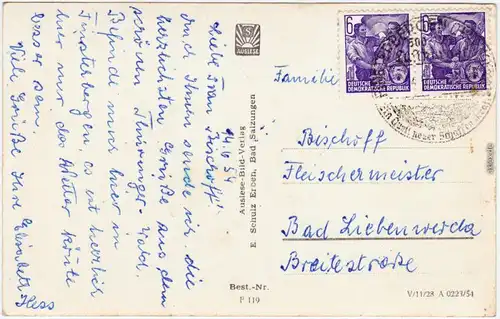 14.6.54
Liebe Frau Bischoff!
Auch Ihnen sende ich die
herzlichsten Grüße aus dem
schönen Thüringer-Wald.
Befinde mich hier in
Finsterbergen, es ist herrlich
hier nur das Wetter könnte
besser sein.
Viele Grüße Ihre Elisabeth
Hess
AUSLESE
Auslese-Bild-Verlag
E. Schulz Erben, Bad Salzungen
Best.-Nr.
F 119
6
DEUTSCHE
DEMOKRATISCHE
REPUBLIK
6
DEUTSCHE
DEMOKRATISCHE
REPUBLIK
Familie
Bischoff
Fleischermeister
Bad Liebenwerda
Breitestraße
V/11/28 A 0223/54